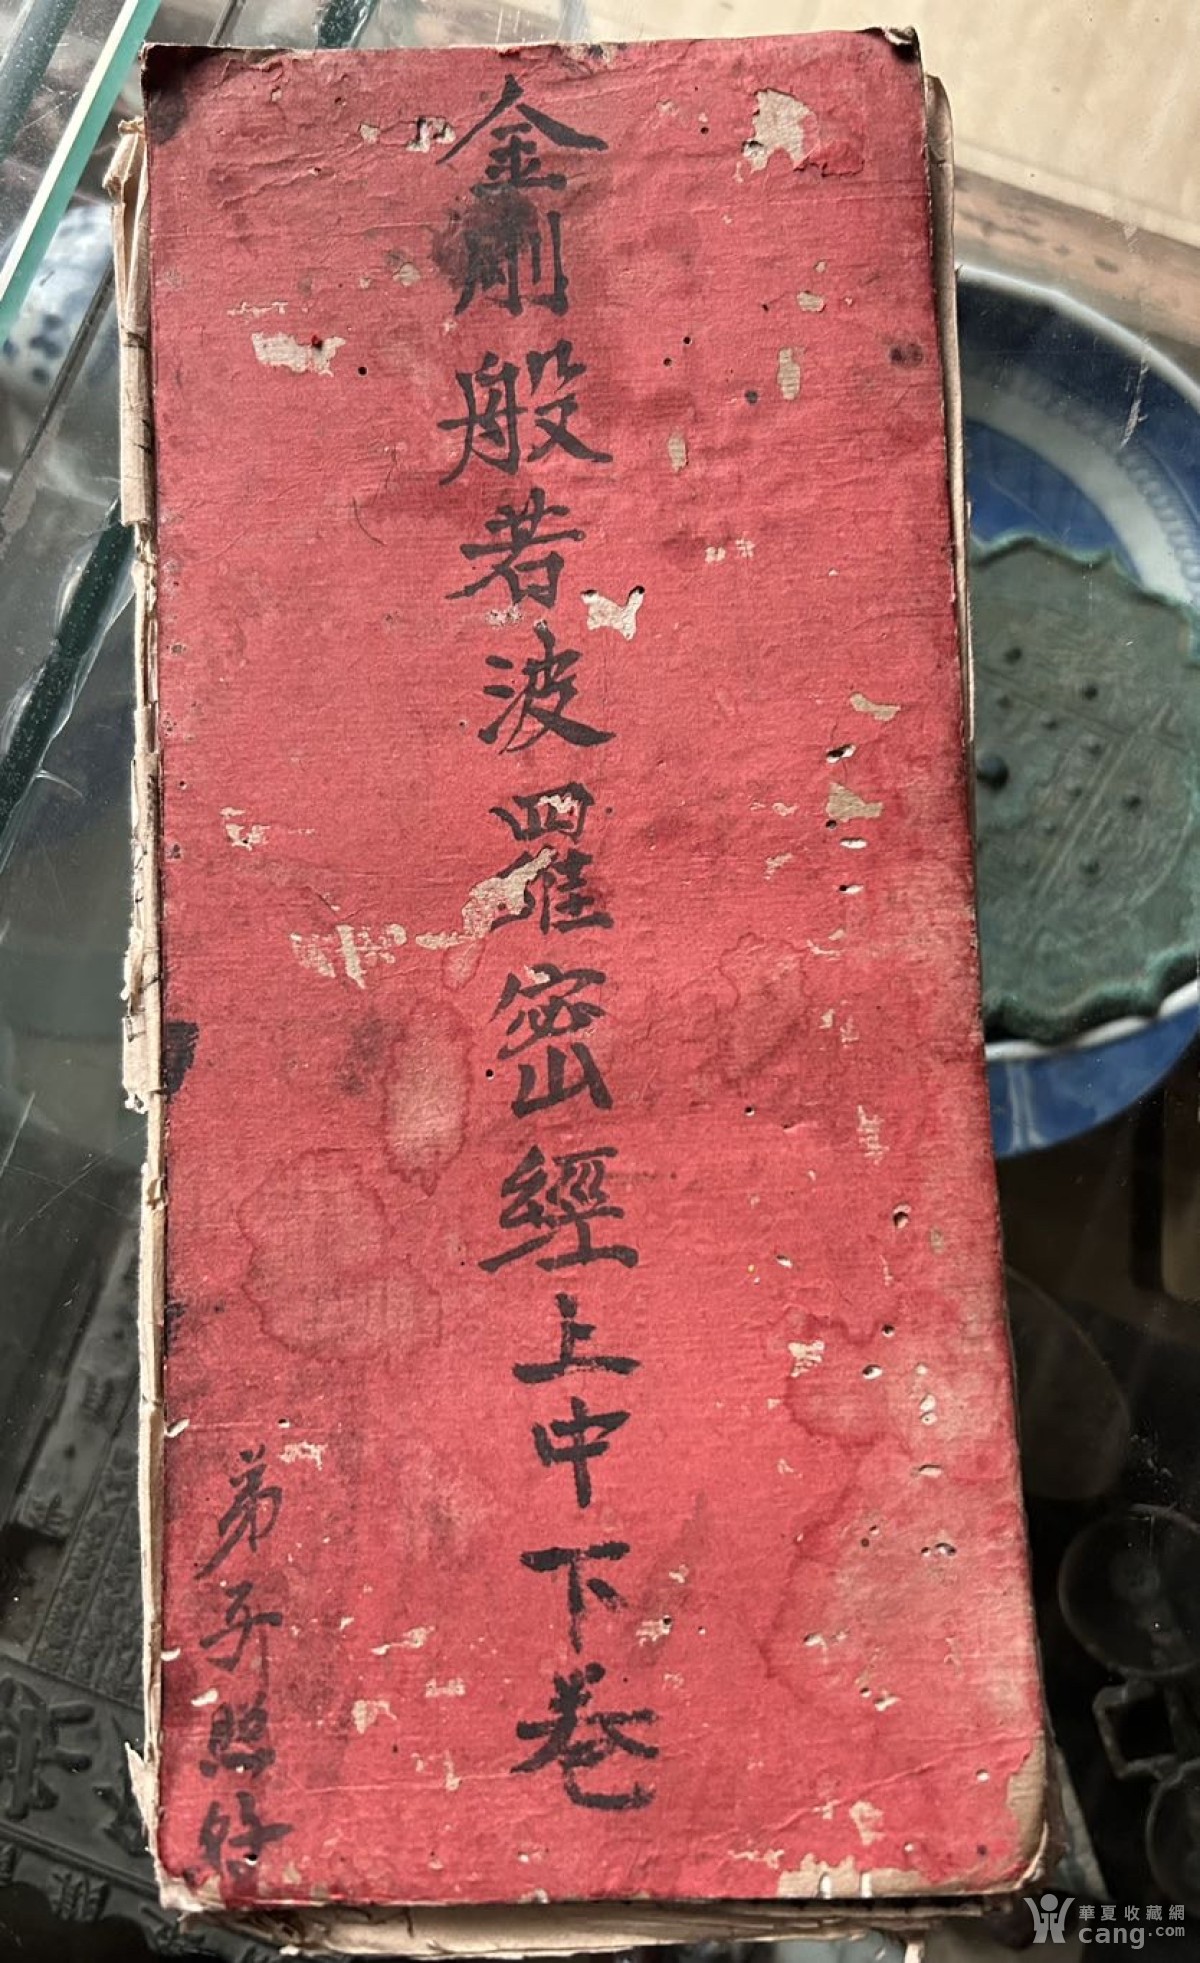 金剛般若波羅密經上中下卷
弟子照
華夏收藏網
cang.com